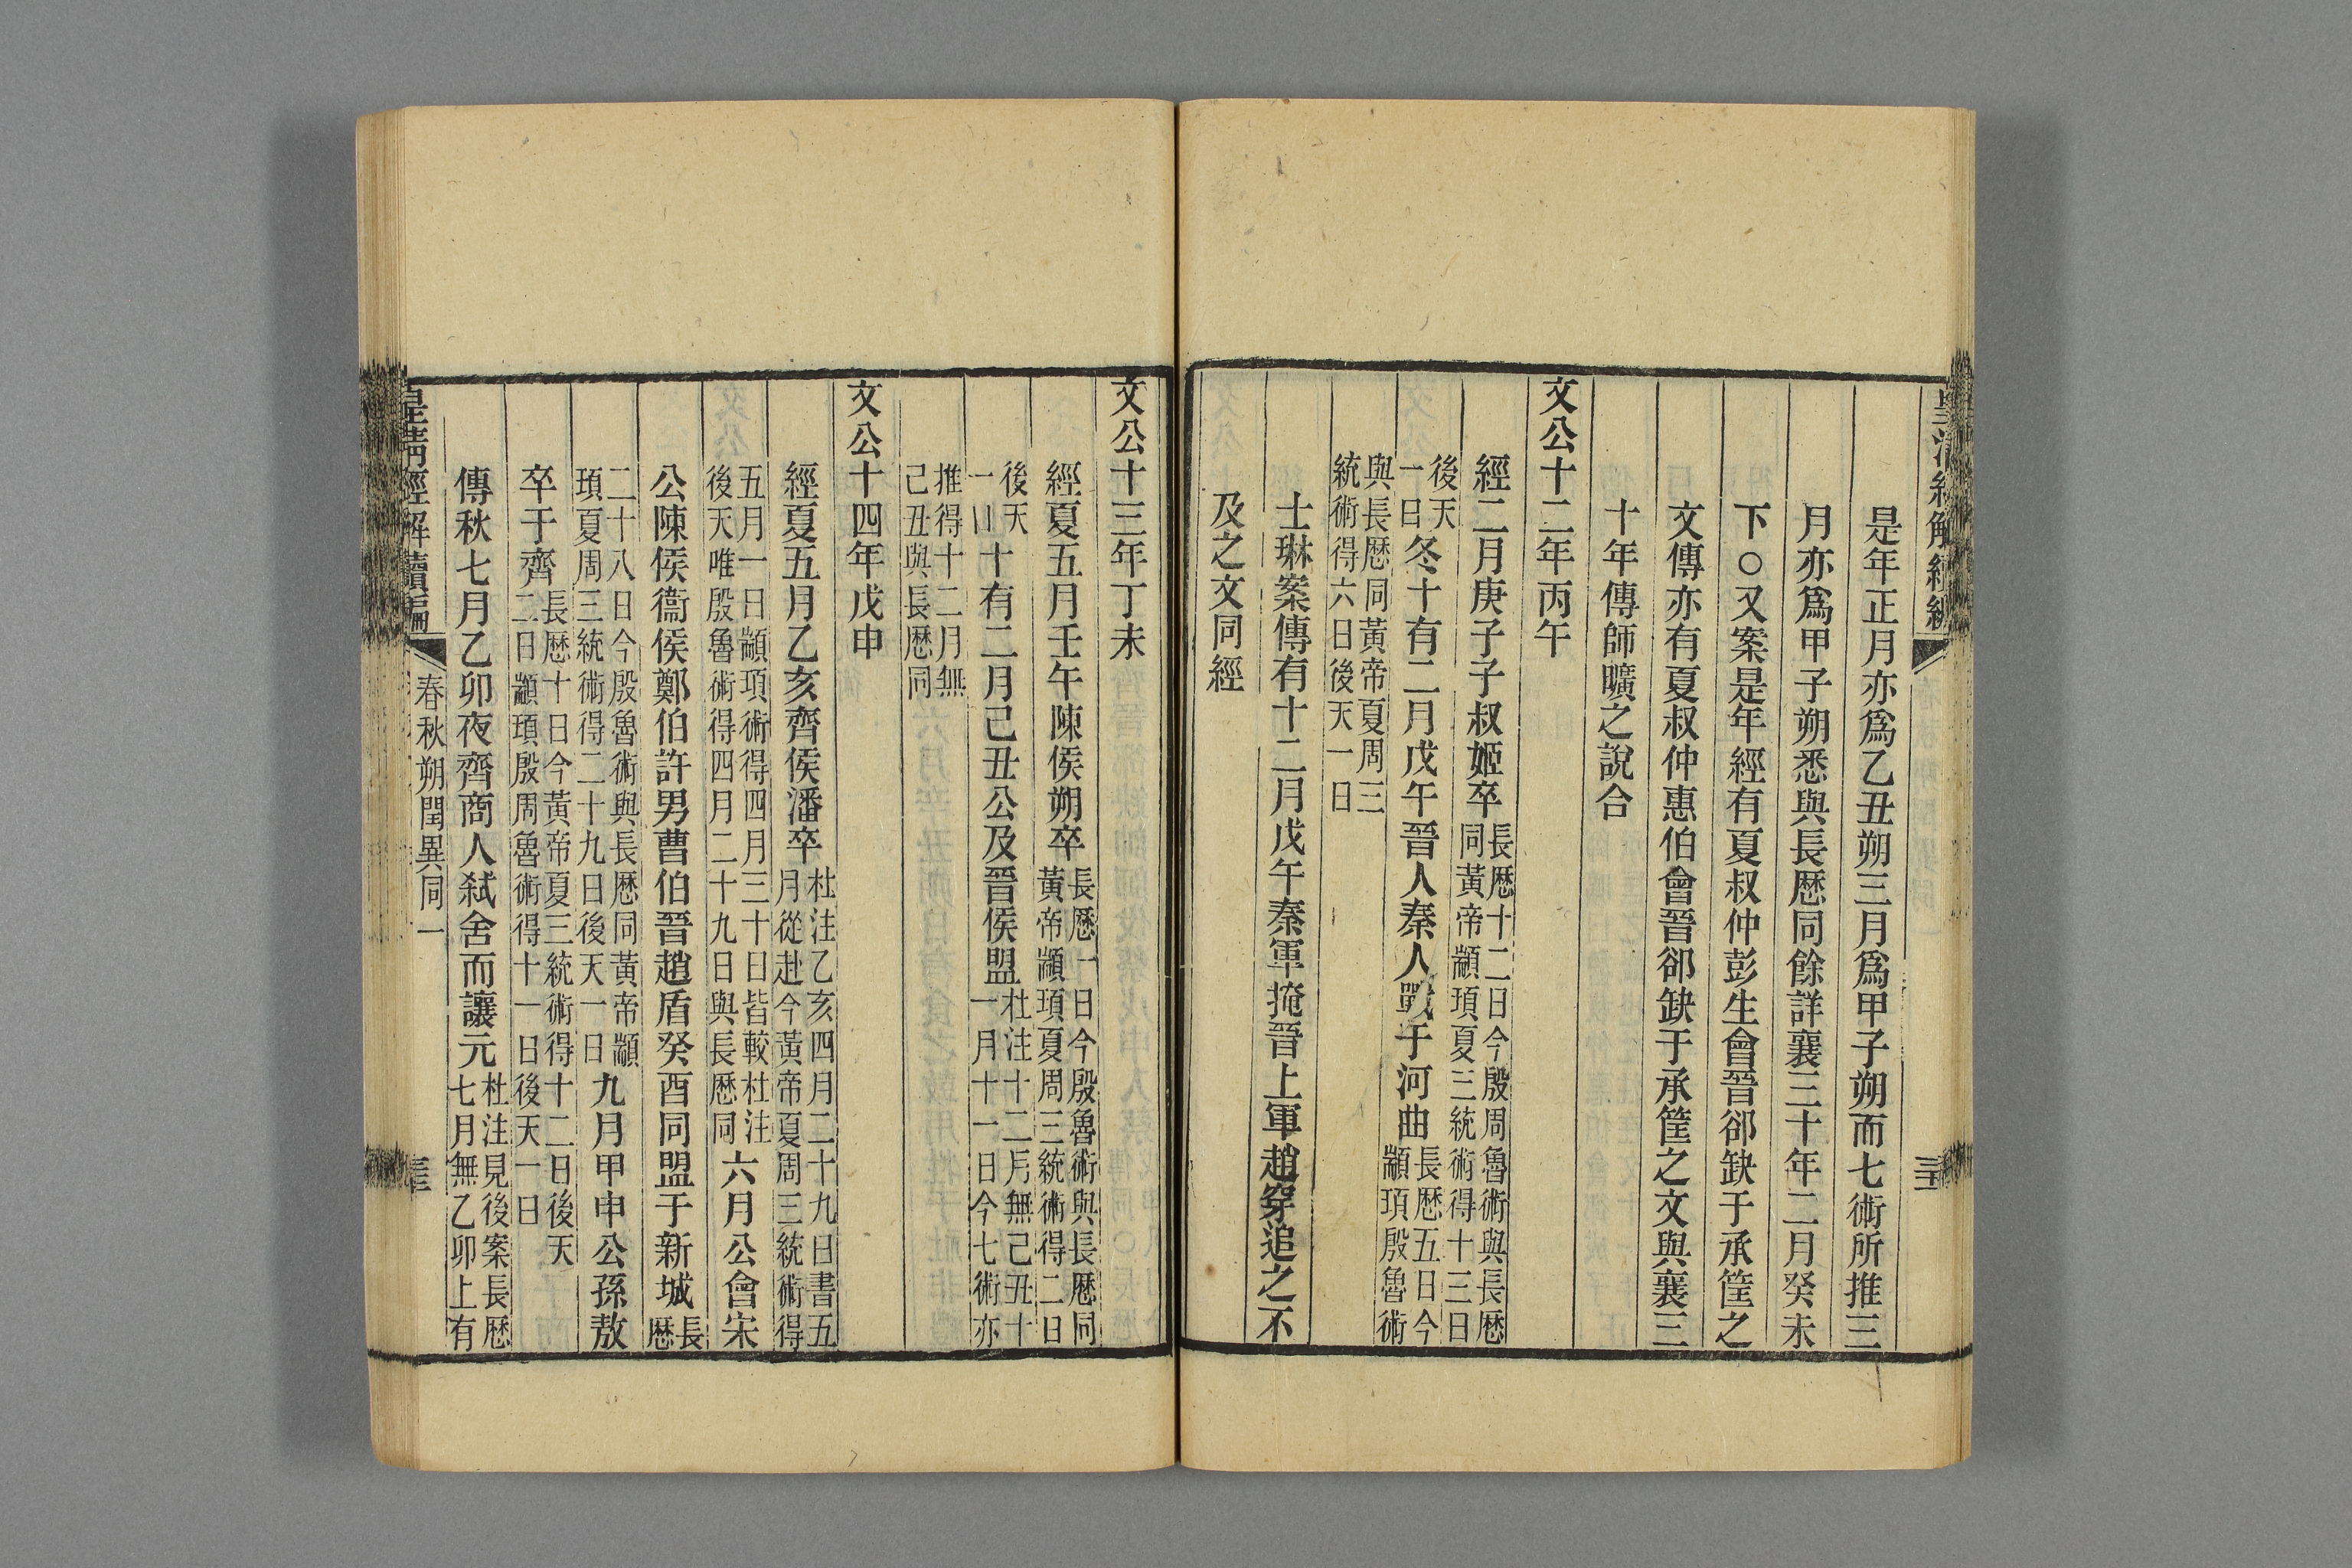 皇清經解續編
三十
是年正月亦爲乙丑朔三月爲甲子朔而七術所推三
月亦爲甲子朔悉與長厯同餘詳襄三十年二月癸未
下○又案是年經有夏叔仲彭生會晉郤缺于承筐之
文傳亦有夏叔仲惠伯會晉郤缺于承筐之文與襄三
十年傳師曠之說合
文公十二年丙午
經二月庚子子叔姬卒
長厯十二日今殷周魯術與長厯
同黃帝顓頊夏三統術得十三日
後天
一日
冬十有二月戊午晉人秦人戰于河曲
長厯五日今
顓頊殷魯術
與長厯同黃帝夏周三
統術得六日後天一日
士琳案傳有十二月戊午秦軍掩晉上軍趙穿追之不
及之文同經
文公十三年丁未
經夏五月壬午陳侯朔卒
長厯一日今殷魯術與長厯同
黃帝顓頊夏周三統術得二日
後天
一日
十有二月己丑公及晉侯盟
杜注十二月無己丑十
一月十一日今七術亦
推得十二月無
己丑與長厯同
文公十四年戊申
經夏五月乙亥齊侯潘卒
杜注乙亥四月二十九日書五
月從赴今黃帝夏周三統術得
五月一日顓頊術得四月三十日皆較杜注
後天唯殷魯術得四月二十九日與長厯同
六月公會宋
公陳侯衞侯鄭伯許男曹伯晉趙盾癸酉同盟于新城
長
厯
二十八日今殷魯術與長厯同黃帝顓
頊夏周三統術得二十九日後天一日
九月甲申公孫敖
卒于齊
長厯十日今黃帝夏三統術得十二日後天
二日顓頊殷周魯術得十一日後天一日
傳秋七月乙卯夜齊商人弒舍而讓元
杜注見後案長厯
七月無乙卯上有
皇淸經解續編
春秋朔閏異同一
三十